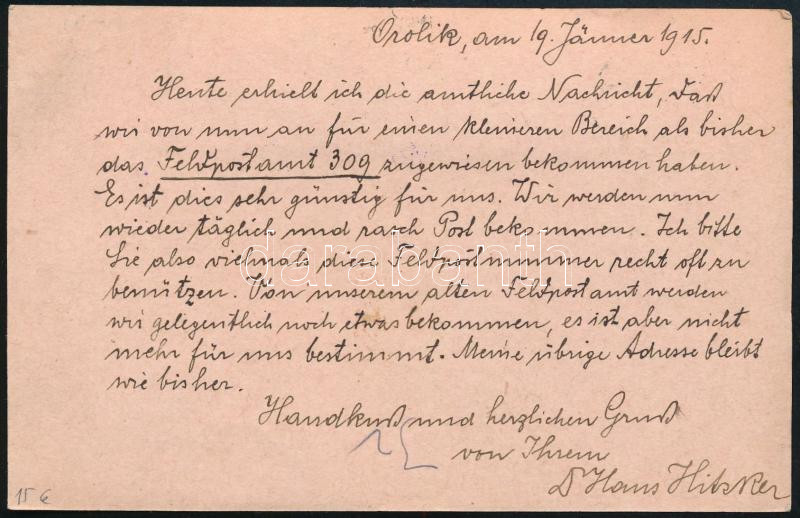 Orolik, am 19. Jänner 1915.
Heute erhielt ich die amtliche Nachricht, daß
wir von nun an für einen kleineren Bereich als bisher
das Feldpostamt 309 zugewiesen bekommen haben.
Es ist dies sehr günstig für uns. Wir werden nun
wieder täglich und rasch Post bekommen. Ich bitte
Sie also vielmals diese Feldpostnummer recht oft zu
benützen. Von unserem alten Feldpostamt werden
wir gelegentlich noch etwas bekommen, es ist aber nicht
mehr für uns bestimmt. Meine übrige Adresse bleibt
wie bisher.
Handkuß und herzlichen Gruß
von Ihrem
Dr Hans
15 €
darabanth